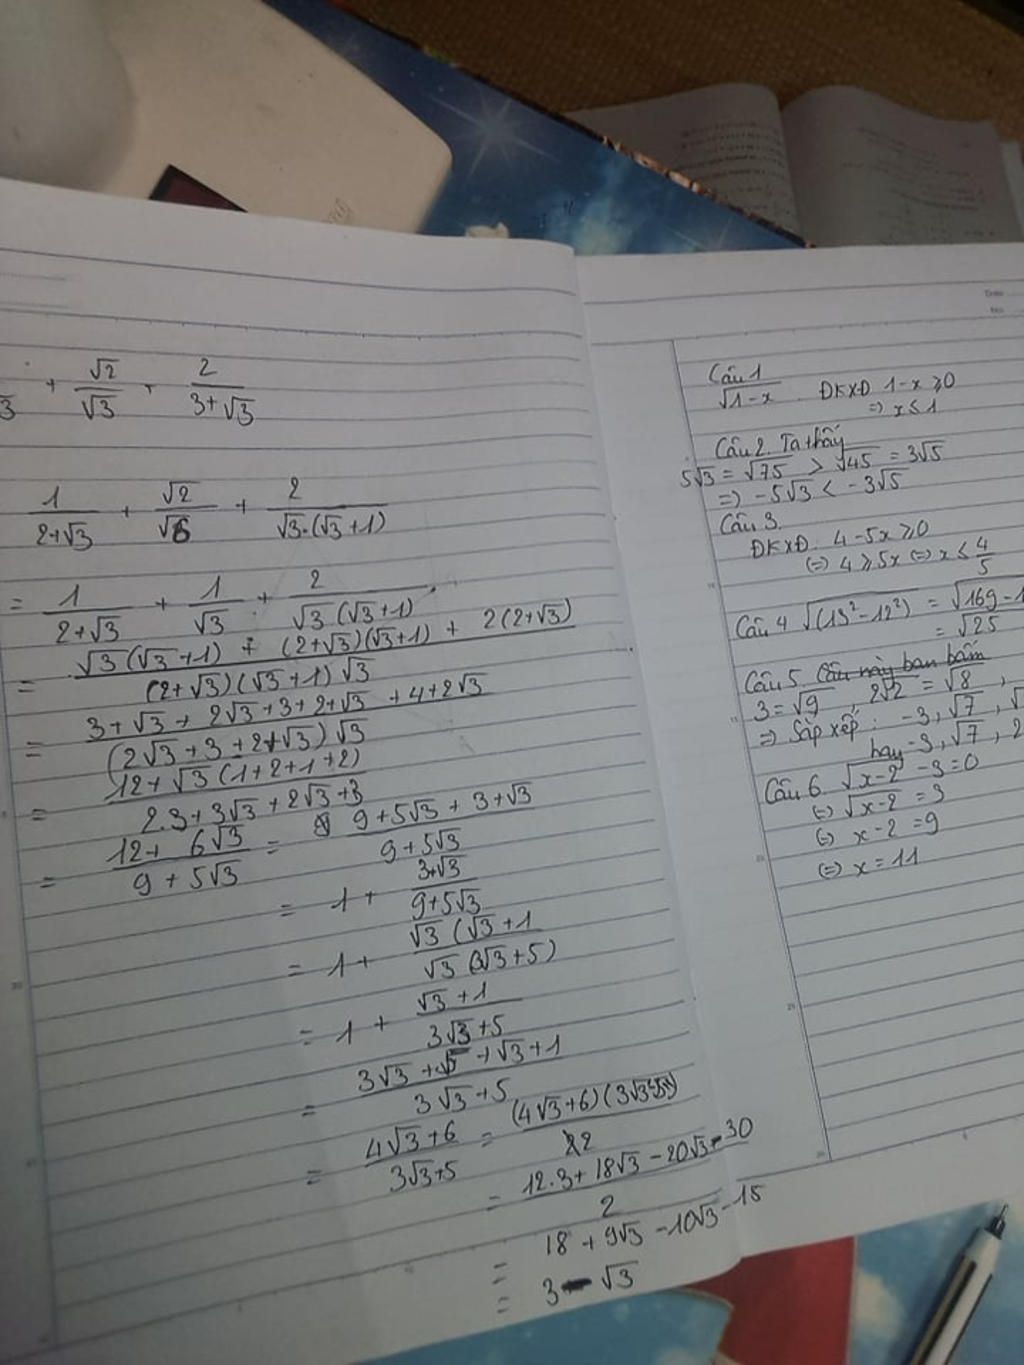 3 + √2/√3 + 2/(3+√3)
1/(2+√3) + √2/√6 + 2/(√3.(√3+1))
= 1/(2+√3) + 1/√3 + 2/(√3(√3+1))
= (√3(√3+1) + (2+√3)(√3+1) + 2(2+√3))/((2+√3)(√3+1)√3)
= (3+√3+2√3+3+2+√3+4+2√3)/((2√3+3+2+√3)√3)
= (12+√3(1+2+1+2))/(2.3+3√3+2√3+3)
= (12+6√3)/(9+5√3) = (9+5√3+3+√3)/(9+5√3)
= 1 + (3+√3)/(9+5√3)
= 1 + (√3(√3+1)/(√3(3√3+5))
= 1 + (√3+1)/(3√3+5)
= (3√3+5+√3+1)/(3√3+5)
= (4√3+6)/(3√3+5) = (4√3+6)(3√3-5)/2
= (12.3+18√3-20√3-30)/2
= 18+9√3-10√3-15
= 3-√3
Câu 1
√1-x ĐKXĐ 1-x ≥ 0
=> x ≤ 1
Câu 2. Ta thấy
5√3 = √75 > √45 = 3√5
=> -5√3 < -3√5
Câu 3.
ĐKXĐ: 4-5x ≥ 0
(=) 4 ≥ 5x (=) x ≤ 4/5
Câu 4 √(13²-12²) = √169-1
= √25
Câu 5. Câu này ban bấm
3 = √9, 2√2 = √8,
=> Sắp xếp: -3, √7, √
hay -3, √7, 2
Câu 6. √x-2 -3=0
(=) √x-2 = 3
(=) x-2 = 9
(=) x = 11